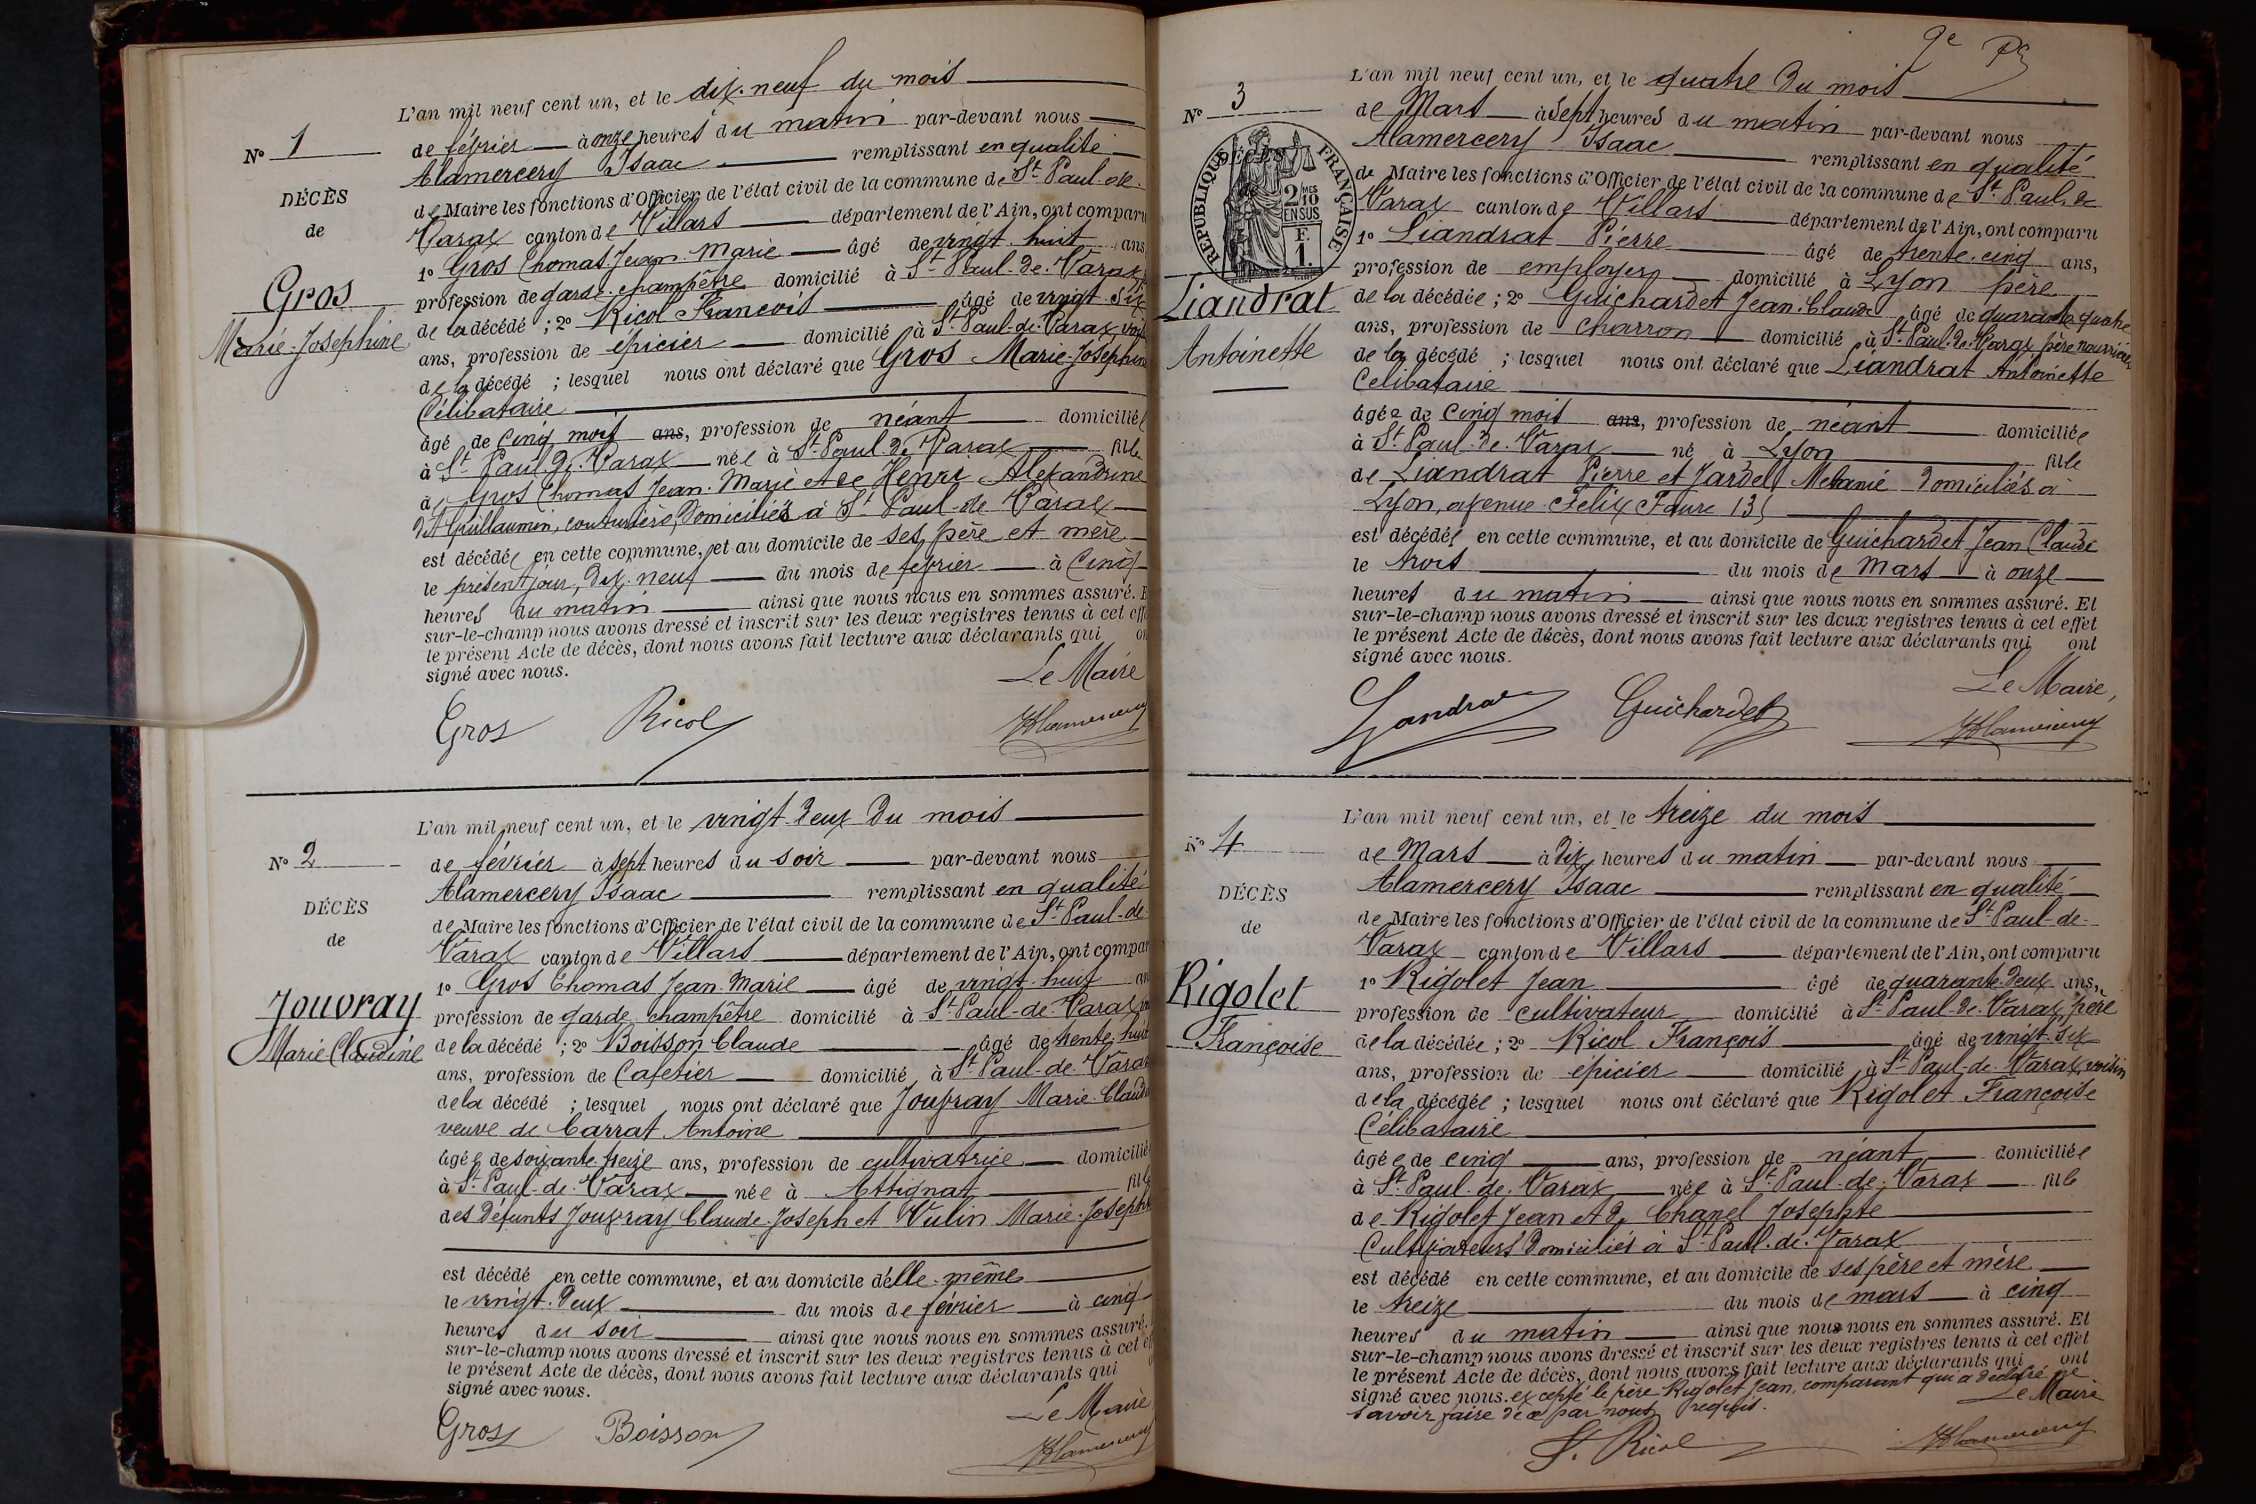 L'an mil neuf cent un, et le dix-neuf du mois
Nº 1
DÉCÈS
de
Gros
Marie-Josephine
de février à onze heures du matin par-devant nous
Alamercery Isaac remplissant en qualité
de Maire les fonctions d'Officier de l'état civil de la commune de St Paul-de-
Varax canton de Villars département de l'Ain, ont comparu
1º Gros Thomas Jean-Marie âgé de vingt huit ans
profession de garde-champêtre domicilié à St Paul-de-Varax
de la décédé ; 2º Ricol François âgé de vingt six
ans, profession de épicier domicilié à St Paul-de-Varax
de la décédé ; lesquel nous ont déclaré que Gros Marie-Josephine
Célibataire
âgé de cinq mois ans, profession de néant domiciliée
à St Paul-de-Varax née à St Paul-de-Varax fille
de Gros Thomas Jean-Marie et de Henri Alexandrine
dit Guillaumin, couturière, domiciliés à St Paul-de-Varax
est décédée en cette commune, et au domicile de ses père et mère
le présent jour, dix-neuf du mois de février à cinq
heures du matin ainsi que nous nous en sommes assuré. E
sur-le-champ nous avons dressé et inscrit sur les deux registres tenus à cet effe
le présent Acte de décès, dont nous avons fait lecture aux déclarants qui on
signé avec nous.
Le Maire
Gros Ricol Alamercery
L'an mil neuf cent un, et le vingt-deux du mois
Nº 2
DÉCÈS
de
Jouvray
Marie Claudine
de février à sept heures du soir par-devant nous
Alamercery Isaac remplissant en qualité
de Maire les fonctions d'Officier de l'état civil de la commune de St Paul-de-
Varax canton de Villars département de l'Ain, ont compar
1º Gros Thomas Jean-Marie âgé de vingt-huit an
profession de garde champêtre domicilié à St Paul-de-Varax
de la décédé ; 2º Boisson Claude âgé de trente-huit
ans, profession de Cafetier domicilié à St Paul-de-Varax
de la décédé ; lesquel nous ont déclaré que Jouvray Marie-Claudin
veuve de Carrat Antoine
âgée de soixante-treize ans, profession de cultivatrice domiciliée
à St Paul-de-Varax née à Attignat fille
des défunts Jouvray Claude-Joseph et Vulin Marie-Josephte
est décédé en cette commune, et au domicile d'elle-même
le vingt-deux du mois de février à cinq
heures du soir ainsi que nous nous en sommes assuré.
sur-le-champ nous avons dressé et inscrit sur les deux registres tenus à cet ef
le présent Acte de décès, dont nous avons fait lecture aux déclarants qui
signé avec nous.
Le Maire
Gros Boisson Alamercery
9e
L'an mil neuf cent un, et le quatre du mois
Nº 3
DÉCÈS
RÉPUBLIQUE FRANÇAISE
2 MES
10
EN SUS
F.
1.
Liandrat
Antoinette
de Mars à sept heures du matin par-devant nous
Alamercery Isaac remplissant en qualité
de Maire les fonctions d'Officier de l'état civil de la commune de St Paul-de
Varax canton de Villars département de l'Ain, ont comparu
1º Liandrat Pierre âgé de trente-cinq ans,
profession de employer domicilié à Lyon père
de la décédée ; 2º Guichardet Jean-Claude âgé de quarante quatre
ans, profession de Charron domicilié à St Paul-de-Varax père nourricier
de la décédé ; lesquel nous ont déclaré que Liandrat Antoinette
Célibataire
âgée de cinq mois ans, profession de néant domiciliée
à St Paul-de-Varax né à Lyon fille
de Liandrat Pierre et Jardel Melanie domiciliés à
Lyon, avenue Felix Faure 135
est décédée en cette commune, et au domicile de Guichardet Jean Claude
le trois du mois de Mars à onze
heures du matin ainsi que nous nous en sommes assuré. Et
sur-le-champ nous avons dressé et inscrit sur les deux registres tenus à cet effet
le présent Acte de décès, dont nous avons fait lecture aux déclarants qui ont
signé avec nous.
Le Maire,
Liandrat Guichardet Alamercery
L'an mil neuf cent un, et le treize du mois
Nº 4
DÉCÈS
de
Rigolet
Françoise
de Mars à dix heures du matin par-devant nous
Alamercery Isaac remplissant en qualité
de Maire les fonctions d'Officier de l'état civil de la commune de St Paul-de-
Varax canton de Villars département de l'Ain, ont comparu
1º Rigolet Jean âgé de quarante-deux ans,
profession de cultivateur domicilié à St Paul-de-Varax, père
de la décédée ; 2º Ricol François âgé de vingt-six
ans, profession de épicier domicilié à St Paul-de-Varax, voisin
de la décédée ; lesquel nous ont déclaré que Rigolet Françoise
Célibataire
âgée de cinq ans, profession de néant domiciliée
à St Paul-de-Varax née à St Paul-de-Varax fille
de Rigolet Jean et de Chanel Josephte
Cultivateurs domiciliés à St Paul-de-Varax
est décédé en cette commune, et au domicile de ses père et mère
le treize du mois de mars à cinq
heures du matin ainsi que nous nous en sommes assuré. Et
sur-le-champ nous avons dressé et inscrit sur les deux registres tenus à cet effet
le présent Acte de décès, dont nous avons fait lecture aux déclarants qui ont
signé avec nous. excepté le père Rigolet Jean, comparant qui a déclaré ne
savoir faire de ce par nous requis.
Le Maire
F. Ricol Alamercery